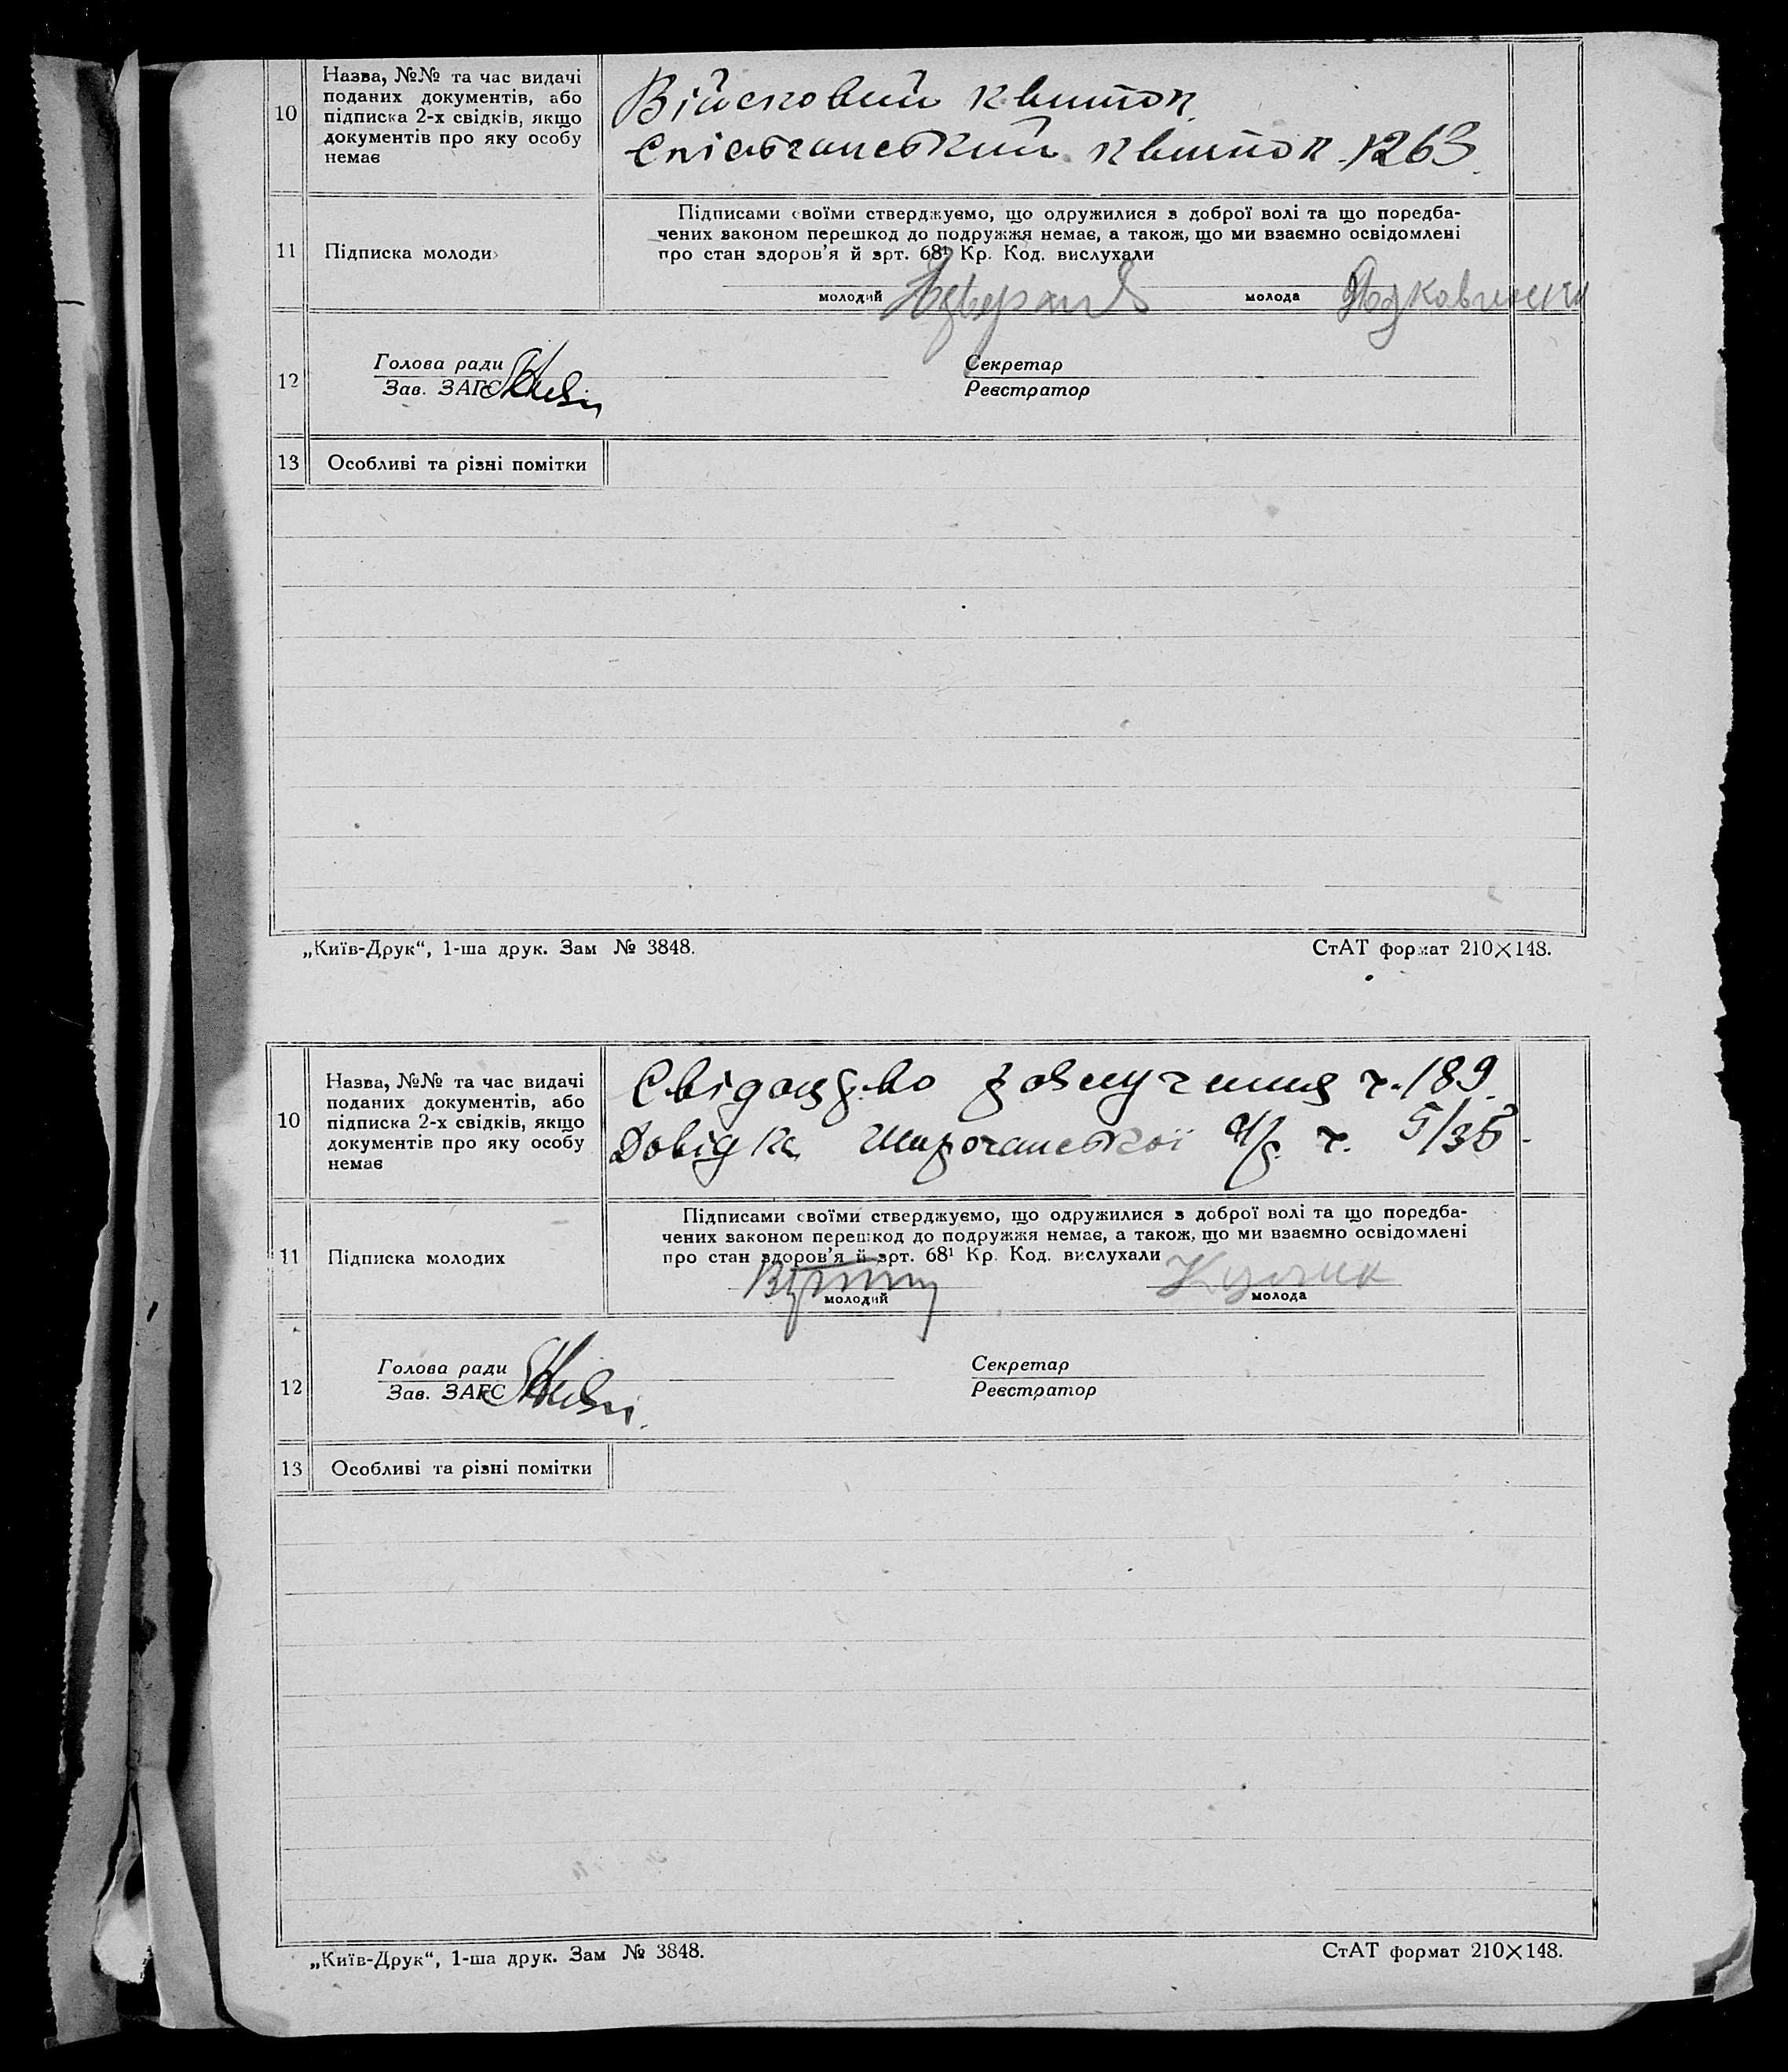 10
Назва, №№ та час видачі
поданих документів, або
підписка 2-х свідків, якщо
документів про яку особу
немає
Військовий квиток
Спілчанський квиток 1263
Підписами своїми стверджуємо, що одружилися з доброї волі та що передба-
чених законом перешкод до подружжя немає, а також, що ми взаємно освідомлені
про стан здоров'я й арт. 68¹ Кр. Код. вислухали
11
Підписка молоди
молодий
молода
12
Голова ради
Зав. ЗАГС
Секретар
Реєстратор
13
Особливі та різні помітки
„Київ-Друк“, 1-ша друк. Зам № 3848.
СтАТ формат 210×148.
10
Назва, №№ та час видачі
поданих документів, або
підписка 2-х свідків, якщо
документів про яку особу
немає
Свідоцтво ч. 189.
Довідка ч. 5/36
Підписами своїми стверджуємо, що одружилися з доброї волі та що передба-
чених законом перешкод до подружжя немає, а також, що ми взаємно освідомлені
про стан здоров'я й арт. 68¹ Кр. Код. вислухали
11
Підписка молодих
молодий
молода
12
Голова ради
Зав. ЗАГС
Секретар
Реєстратор
13
Особливі та різні помітки
„Київ-Друк“, 1-ша друк. Зам № 3848.
СтАТ формат 210×148.